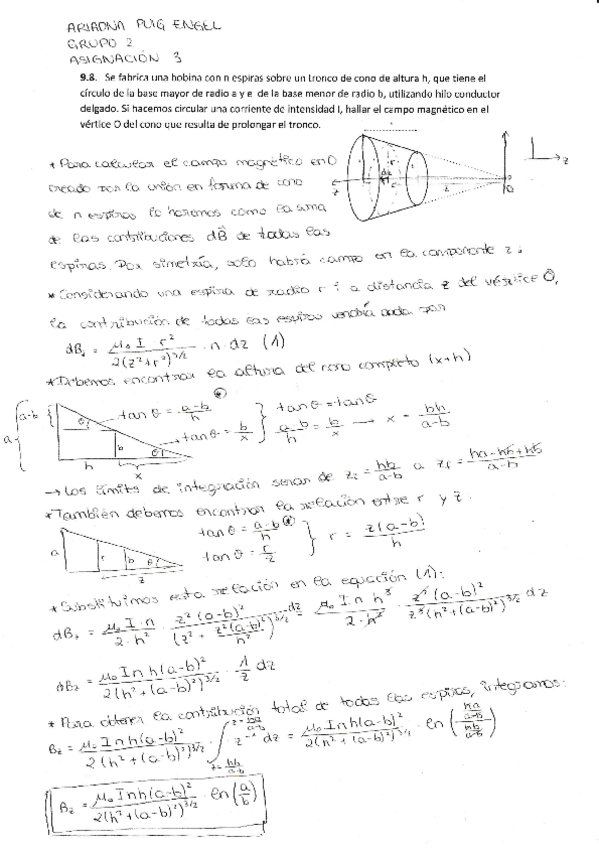 ARIADNA PUIG ENGEL
GRUPO 2
ASIGNACIÓN 3
9.8. Se fabrica una bobina con n espiras sobre un tronco de cono de altura h, que tiene el
círculo de la base mayor de radio a y e de la base menor de radio b, utilizando hilo conductor
delgado. Si hacemos circular una corriente de intensidad I, hallar el campo magnético en el
vértice O del cono que resulta de prolongar el tronco.
* Para calcular el campo magnético en O
creado por la unión en forma de cono
de n espiras lo haremos como la suma
de las contribuciones dB⃗ de todas las
espiras. Por simetría, solo habrá campo en la componente z:
* Considerando una espira de radio r i a distancia z del vértice O,
la contribución de todas las espiras vendrá dada por
dB₁ = μ₀ I r² / 2(z²+r²)^3/2 · n · dz (1)
* Debemos encontrar la altura del cono completo (x+h)
tanθ = a-b / h
tanθ = b / x
tanθ = tanθ
a-b / h = b / x → x = bh / a-b
a-b
a
b
h
x
→ Los límites de integración seran de z₂ = hb / a-b a z₁ = ha-hb+hb / a-b
* También debemos encontrar la relación entre r y z.
tanθ = a-b / h
tanθ = r / z
r = z(a-b) / h
a
r
b
θ
z
* Substituimos esta relación en la equación (1):
dB₂ = μ₀ I · n / 2 · h² · z²(a-b)² / (z² + z²(a-b)² / h²)^3/2 dz = μ₀ I n h³ / 2 · h² · z²(a-b)² / z³(h²+(a-b)²)^3/2 dz
dBz = μ₀ I n h(a-b)² / 2(h²+(a-b)²)^3/2 · 1 / z dz
* Para obtener la contribución total de todas las espiras, integramos:
Bz = μ₀ I n h(a-b)² / 2(h²+(a-b)²)^3/2 · ∫ z⁻¹ dz = μ₀ I n h(a-b)² / 2(h²+(a-b)²)^3/2 · ln (ha / a-b / hb / a-b)
Bz = μ₀ I n h(a-b)² / 2(h²+(a-b)²)^3/2 · ln (a / b)